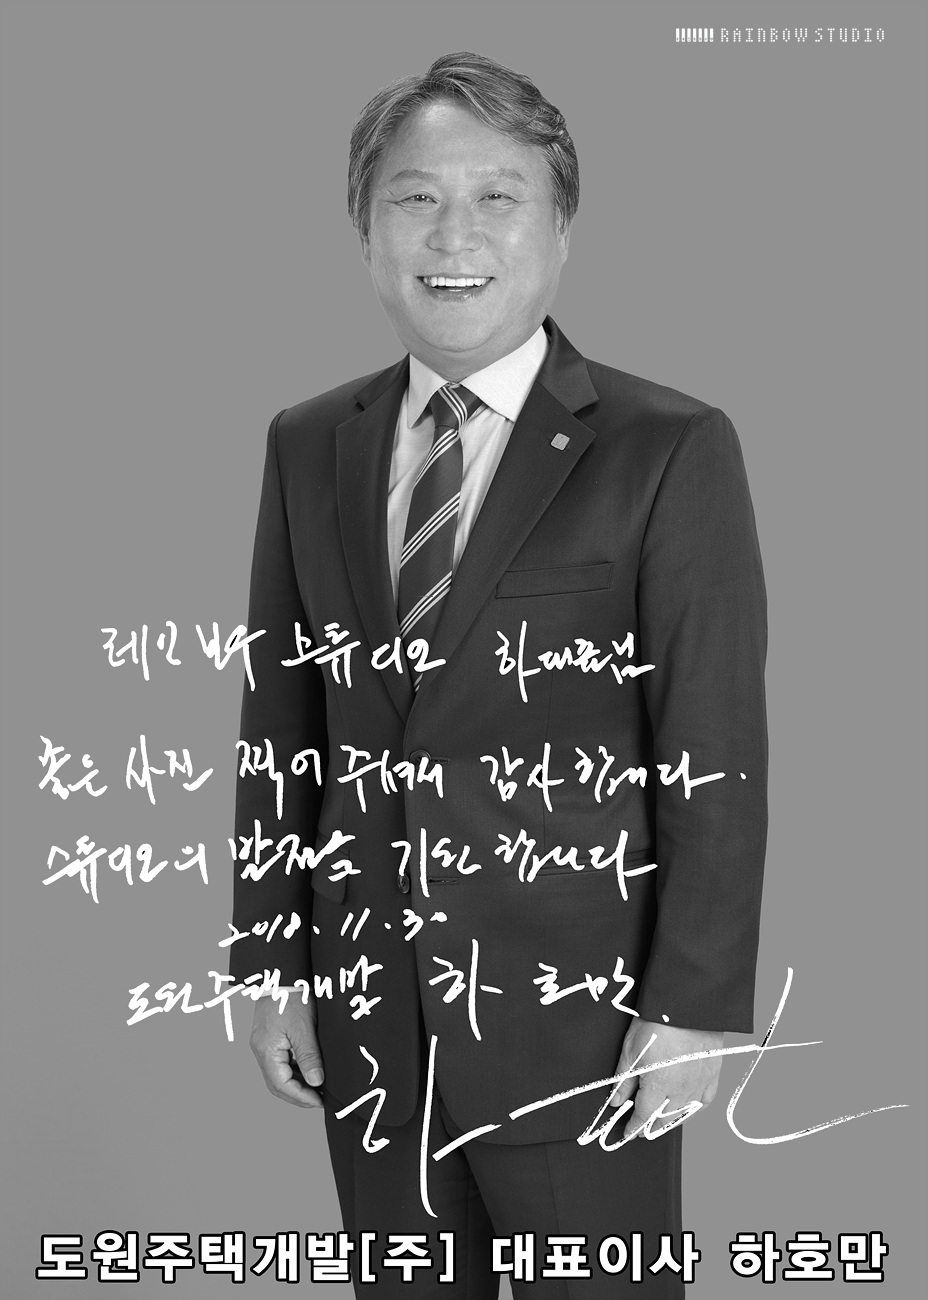 RAINBOW STUDIO
레인보우 스튜디오 하대표님
좋은 사진 찍어 주셔서 감사합니다.
스튜디오의 발전을 기원합니다
2018. 11. 30
도원주택개발 하호만.
도원주택개발[주] 대표이사 하호만